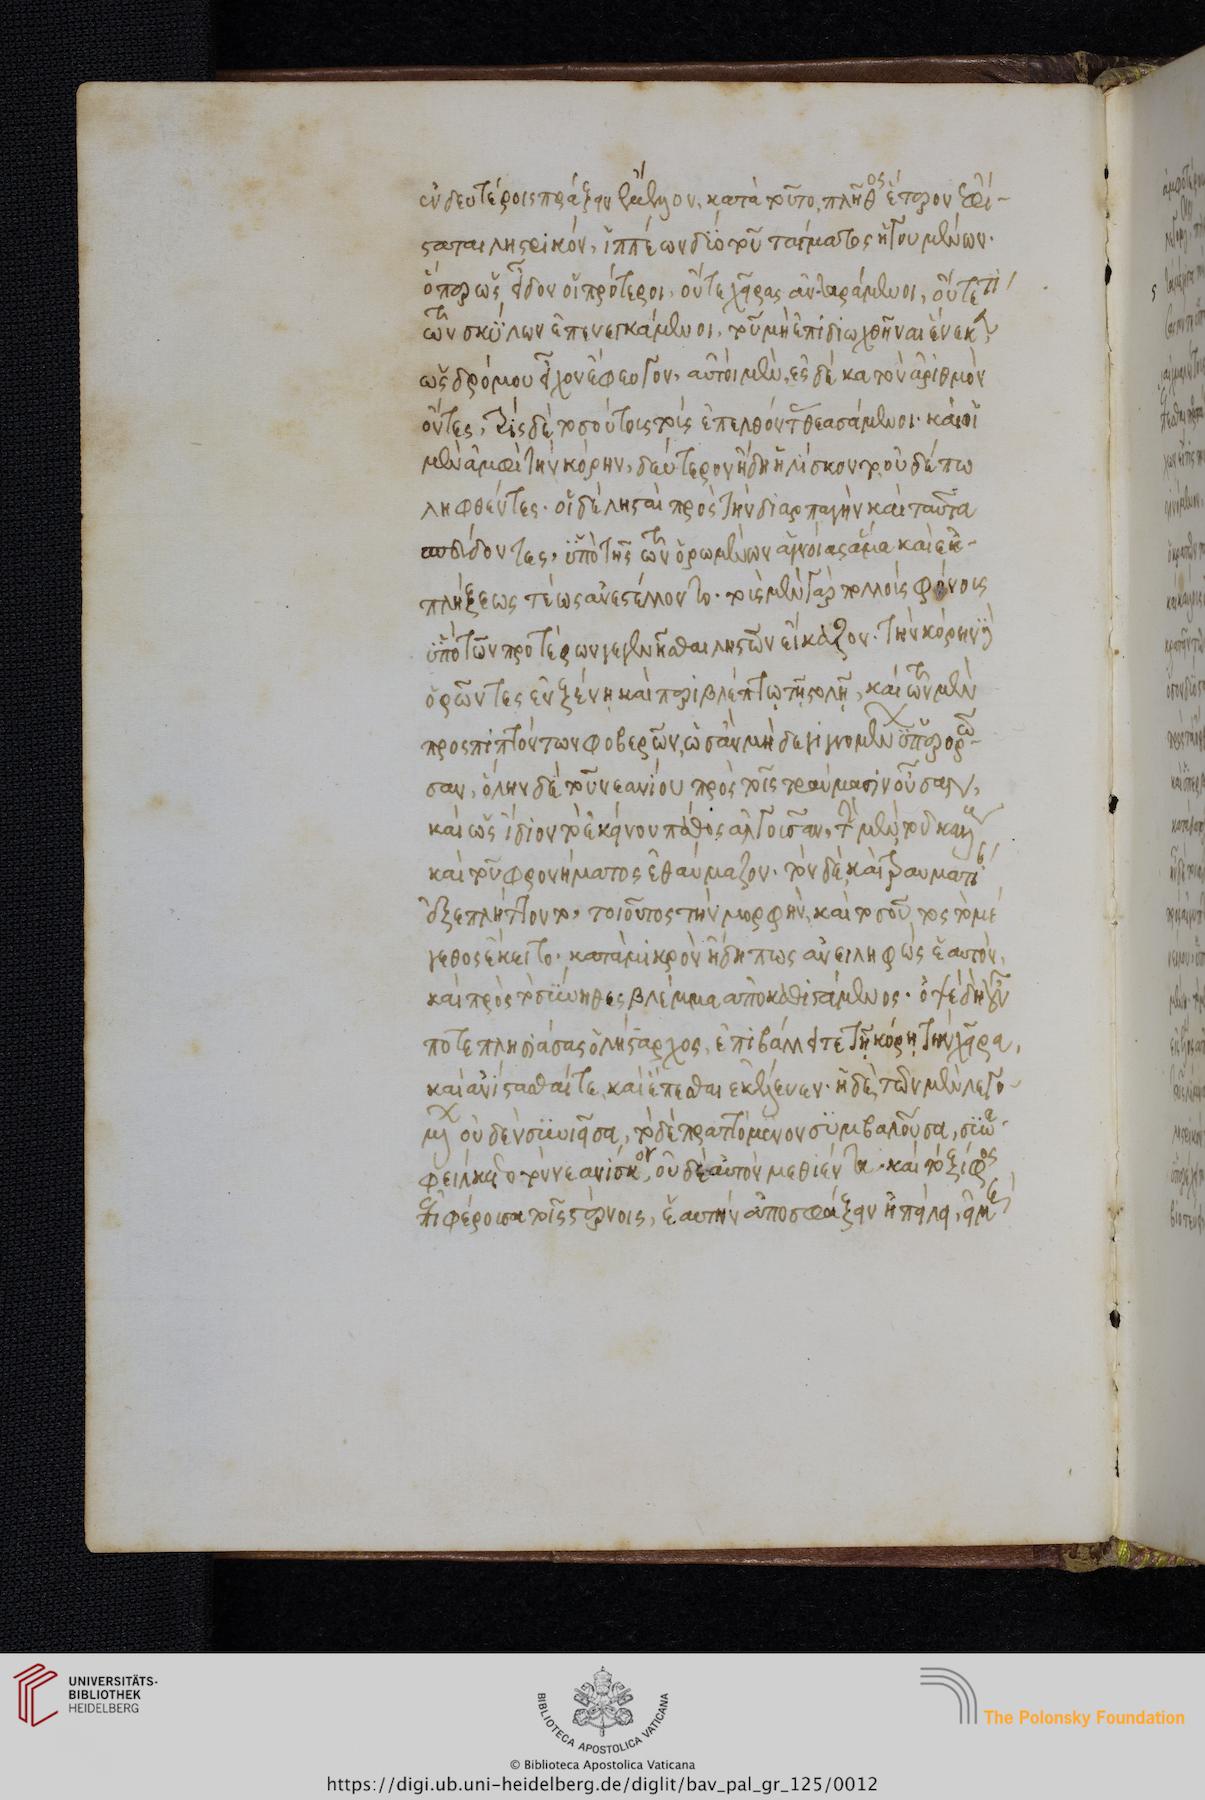 ἐν δευτέροις πράξειν ἔμελλον, κατὰ τοῦτο, πλῆθος ἕτερον ἐφί-
σταται ληστρικόν, ἱππέων δύο τοῦ τάγματος ἡγουμένων.
ὅπερ ὡς εἶδον οἱ πρότεροι, οὔτε χεῖρας ἀνταράμενοι, οὔτέ τι
τῶν σκύλων ἐπενεγκάμενοι, τοῦ μὴ ἐπιδιωχθῆναι ἕνεκα,
ὡς δρόμου εἶχον ἔφευγον, αὐτοὶ μὲν, ἐς δέκα τὸν ἀριθμὸν
ὄντες, τρὶς δὲ τοσούτοις τοὺς ἐπελθόντας θεασάμενοι. καὶ οἱ
μὲν ἀμφὶ τὴν κόρην, δεύτερον ἤδη ἡλίσκοντο οὐδέπω
ληφθέντες. οἱ δὲ λησταὶ πρὸς τὴν διαρπαγὴν καὶ ταῦτα
σπεύδοντες, ὑπὸ τῆς τῶν ὁρωμένων ἀγνοίας ἅμα καὶ ἐκ-
πλήξεως τέως ἀνεστέλλοντο. τοὺς μὲν γὰρ πολλοὺς φόνους
ὑπὸ τῶν προτέρων γεγενῆσθαι ληστῶν εἴκαζον. τὴν κόρην δὲ
ὁρῶντες ἐν ξένῃ καὶ περιβλέπτῳ τῇ στολῇ, καὶ τῶν μὲν
προσπιπτόντων φοβερῶν, ὡς ἂν μὴ δὲ γιγνομένων ὑπερορῶ-
σαν, ὅλην δὲ τοῦ νεανίου πρὸς τοῖς τραύμασιν οὖσαν,
καὶ ὡς ἴδιον τὸ ἐκείνου πάθος ἀλγοῦσαν, τὴν μὲν τοῦ κάλλους
καὶ τοῦ φρονήματος ἐθαύμαζον. τὸν δὲ, καὶ τραυματίαν
ἐξεπλήττοντο, τοιοῦτος τὴν μορφὴν, καὶ τοσοῦτος τὸ μέ
γεθος ἔκειτο. κατὰ μικρὸν ἤδη πως ἀνειληφὼς ἑαυτὸν,
καὶ πρὸς τὸ σύνηθες βλέμμα ἀποκαθιστάμενος. ὀψὲ δὴ γοῦν
ποτε πλησιάσας ὁ λήσταρχος, ἐπιβάλλει τε τῇ κόρῃ τὴν χεῖρα,
καὶ ἀνίστασθαί τε, καὶ ἕπεσθαι ἐκέλευεν. ἡ δὲ, τῶν μὲν λεγο-
μένων οὐδὲν συνιεῖσα, τὸ δὲ πραττόμενον συμβαλοῦσα, συν-
εφείλκετο τὸν νεανίσκον, οὐδὲ αὐτὸν μεθιέντα. καὶ τὸ ξίφος
ἐπιφέρουσα τοῖς στέρνοις, ἑαυτὴν ἀποσφάξειν ἠπείλει, εἰ μὴ
UNIVERSITÄTS-
BIBLIOTHEK
HEIDELBERG
BIBLIOTECA APOSTOLICA VATICANA
The Polonsky Foundation
© Biblioteca Apostolica Vaticana
https://digi.ub.uni-heidelberg.de/diglit/bav_pal_gr_125/0012